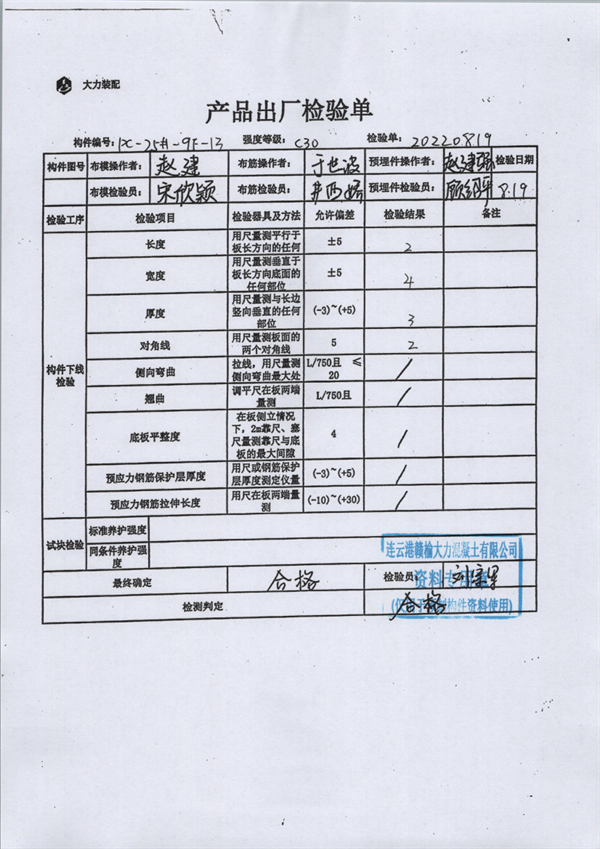 大力装配
产品出厂检验单
构件编号: DC-25#-9F-13 强度等级: C30 检验单: 20220819
构件图号 布模操作者: 赵建 布筋操作者: 于世波 预埋件操作者: 赵建强 检验日期
布模检验员: 宋欣颖 布筋检验员: 预埋件检验员: 8.19
检验工序 检验项目 检验器具及方法 允许偏差 检验结果 备注
构件下线检验
长度 用尺量测平行于板长方向的任何 ±5 2
宽度 用尺量测垂直于板长方向底面的任何部位 ±5 4
厚度 用尺量测与长边竖向垂直的任何部位 (-3)~(+5) 3
对角线 用尺量测板面的两个对角线 5 2
侧向弯曲 拉线，用尺量测侧向弯曲最大处 L/750且 ≤20 /
翘曲 调平尺在板两端量测 L/750且 /
底板平整度 在板侧立情况下，2m靠尺、塞尺量测靠尺与底板的最大间隙 4 /
预应力钢筋保护层厚度 用尺或钢筋保护层厚度测定仪量 (-3)~(+5) /
预应力钢筋拉伸长度 用尺在板两端量测 (-10)~(+30) /
试块检验 标准养护强度
同条件养护强度
最终确定 合格 检验员:
检测判定 合格
连云港赣榆大力混凝土有限公司
资料专
构件资料使用)